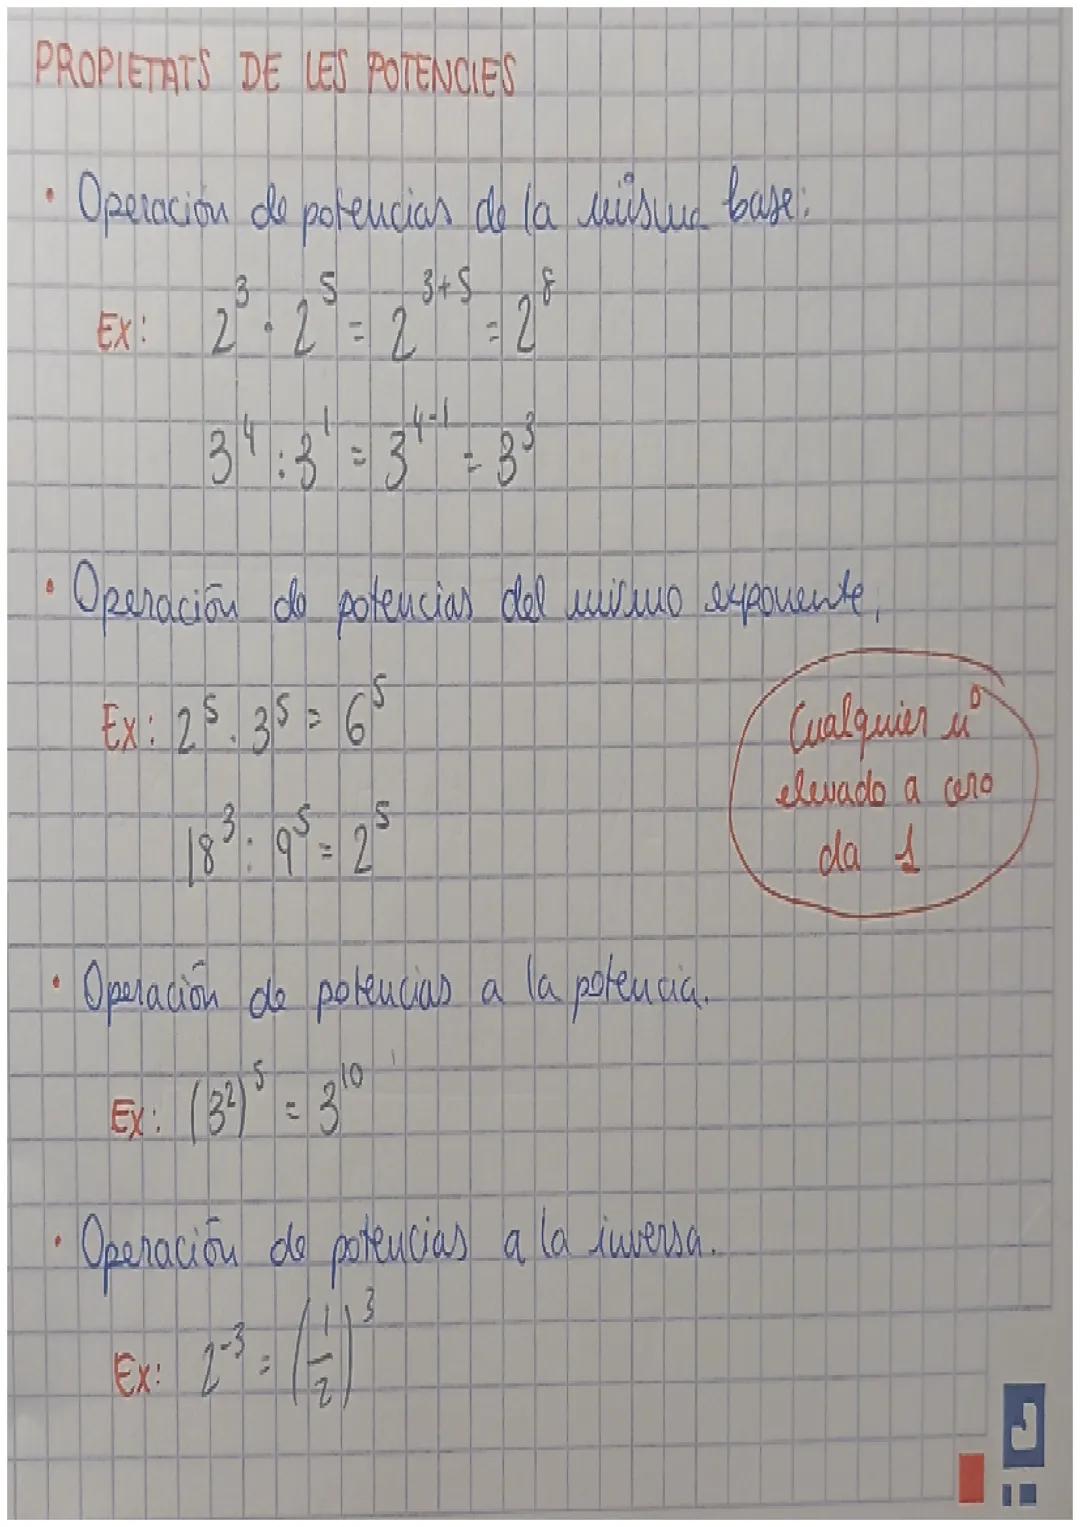 PROPIETATS DE LES POTENCIES
• Operación de potencias de la misma base:
Ex: 2³ · 2⁵ = 2³⁺⁵ = 2⁸
3⁴ : 3¹ = 3⁴⁻¹ = 3³
• Operación de potencias del mismo exponente,
Ex: 2⁵ · 3⁵ = 6⁵
18³ : 9⁵ = 2⁵
Cualquier nº
elevado a cero
da 1
• Operación de potencias a la potencia.
Ex: (3²)⁵ = 3¹⁰
• Operación de potencias a la inversa.
Ex: 2⁻³ = (1/2)³